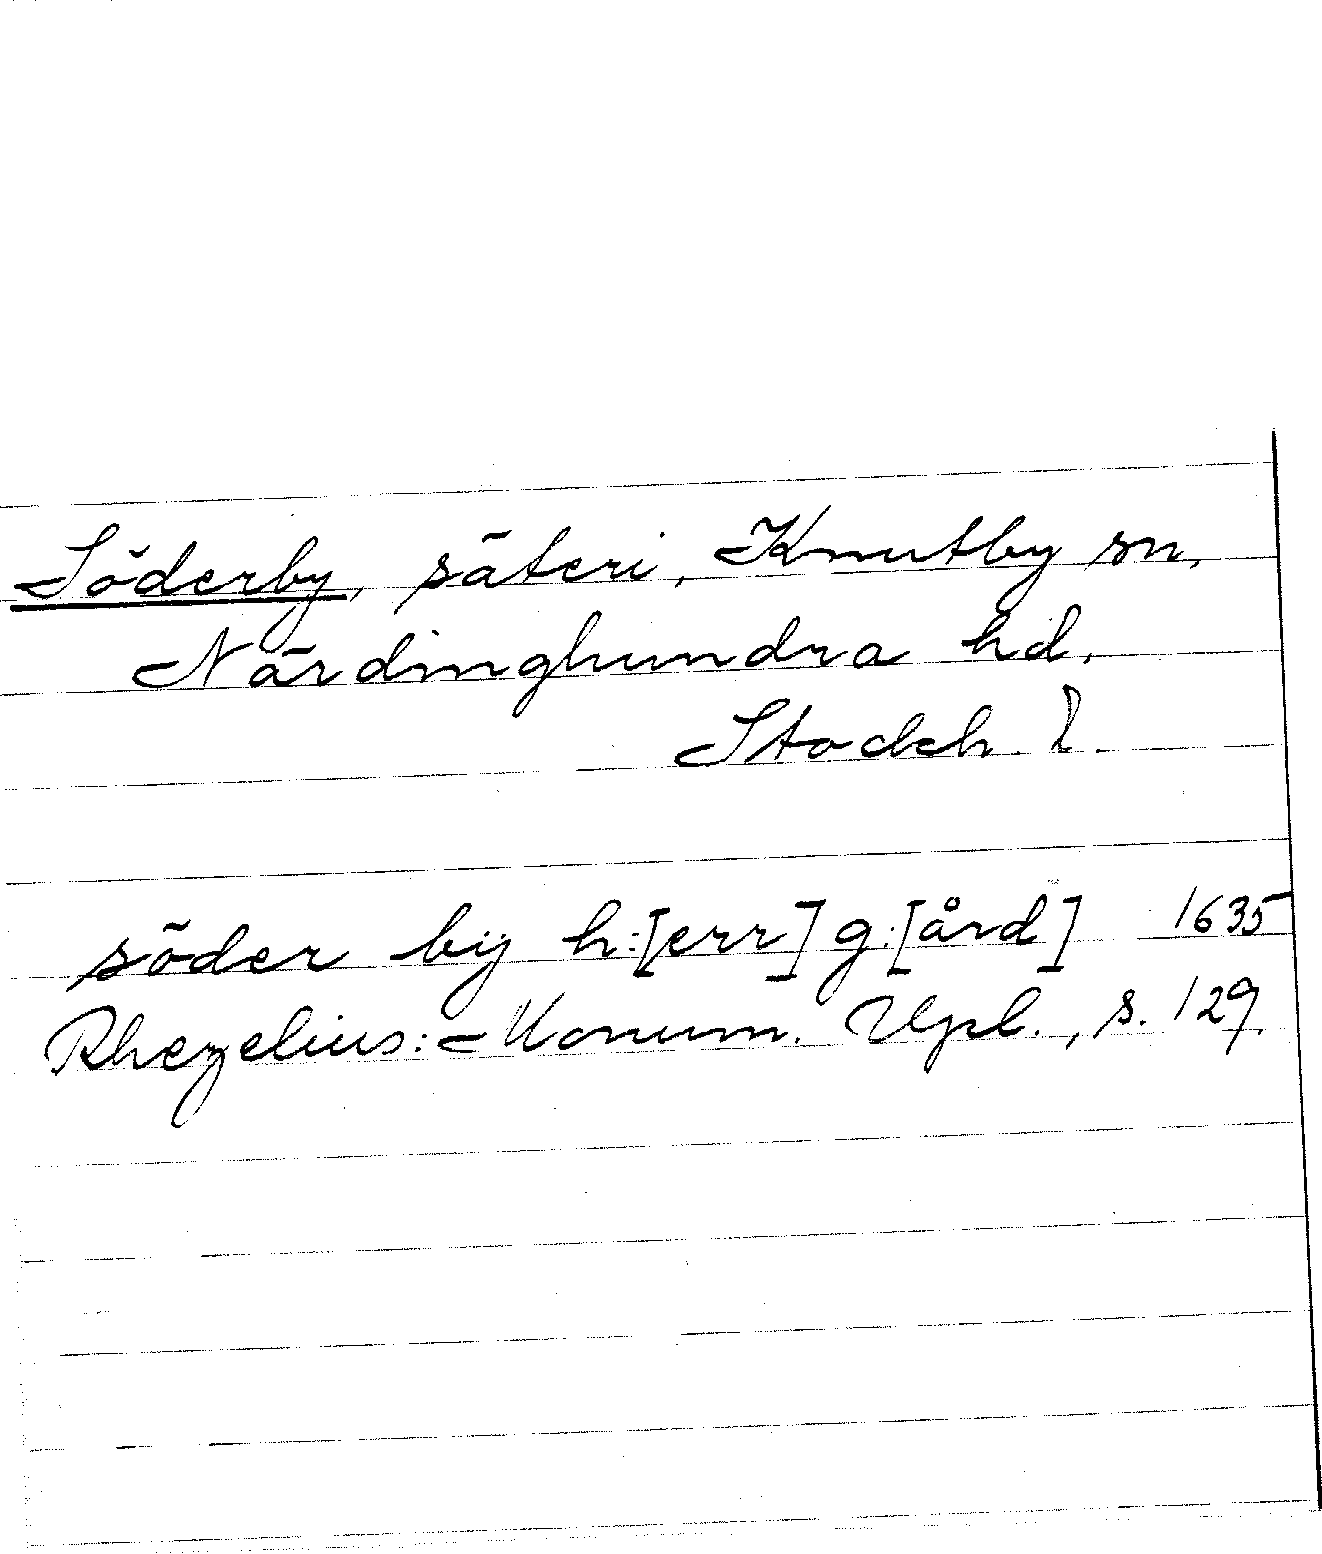 Söderby, säteri, Knutby sn,
Närdinghundra hd,
Stockh. l.
söder bÿ h:[err] g:[ård] 1635
Rhezelius: Monum. Upl., s. 129.